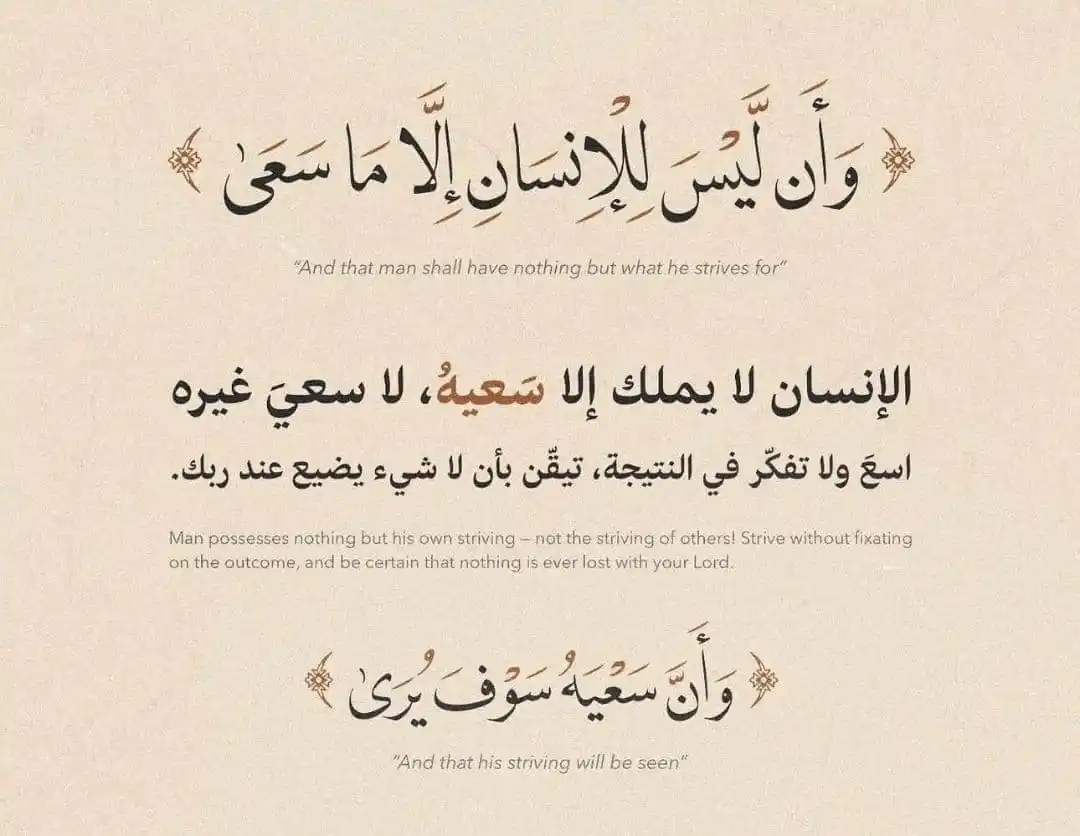 ﴿ وَأَن لَّيْسَ لِلْإِنسَانِ إِلَّا مَا سَعَىٰ ﴾
“And that man shall have nothing but what he strives for”
الإنسان لا يملك إلا سَعيهُ، لا سعيَ غيره
اسعَ ولا تفكّر في النتيجة، تيقّن بأن لا شيء يضيع عند ربك.
Man possesses nothing but his own striving – not the striving of others! Strive without fixating
on the outcome, and be certain that nothing is ever lost with your Lord.
﴿ وَأَنَّ سَعْيَهُ سَوْفَ يُرَىٰ ﴾
“And that his striving will be seen”